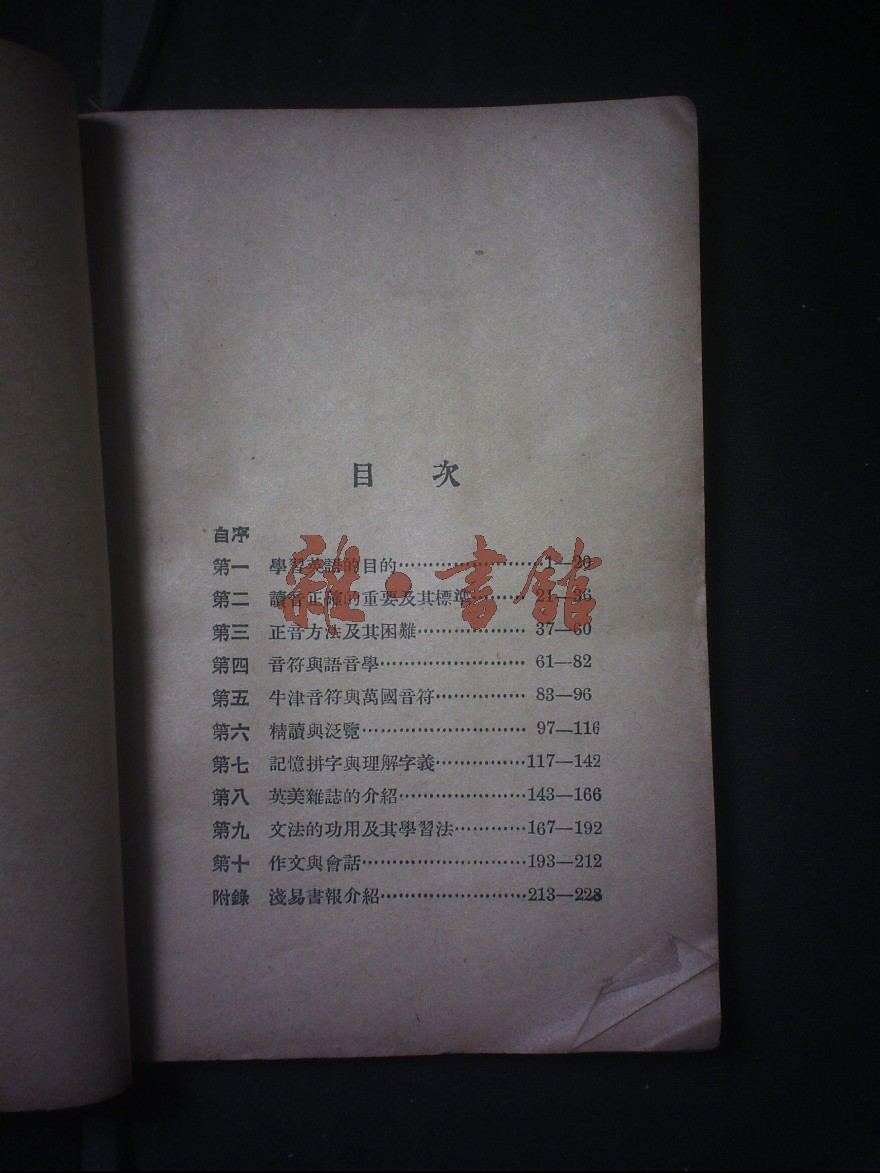 目次
自序
第一 學習英語的目的……………………1—20
第二 讀音正確的重要及其標準………21—36
第三 正音方法及其困難………………37—60
第四 音符與語音學……………………61—82
第五 牛津音符與萬國音符……………83—96
第六 精讀與泛覽………………………97—116
第七 記憶拼字與理解字義……………117—142
第八 英美雜誌的介紹…………………143—166
第九 文法的功用及其學習法…………167—192
第十 作文與會話………………………193—212
附錄 淺易書報介紹……………………213—228
雜·書館